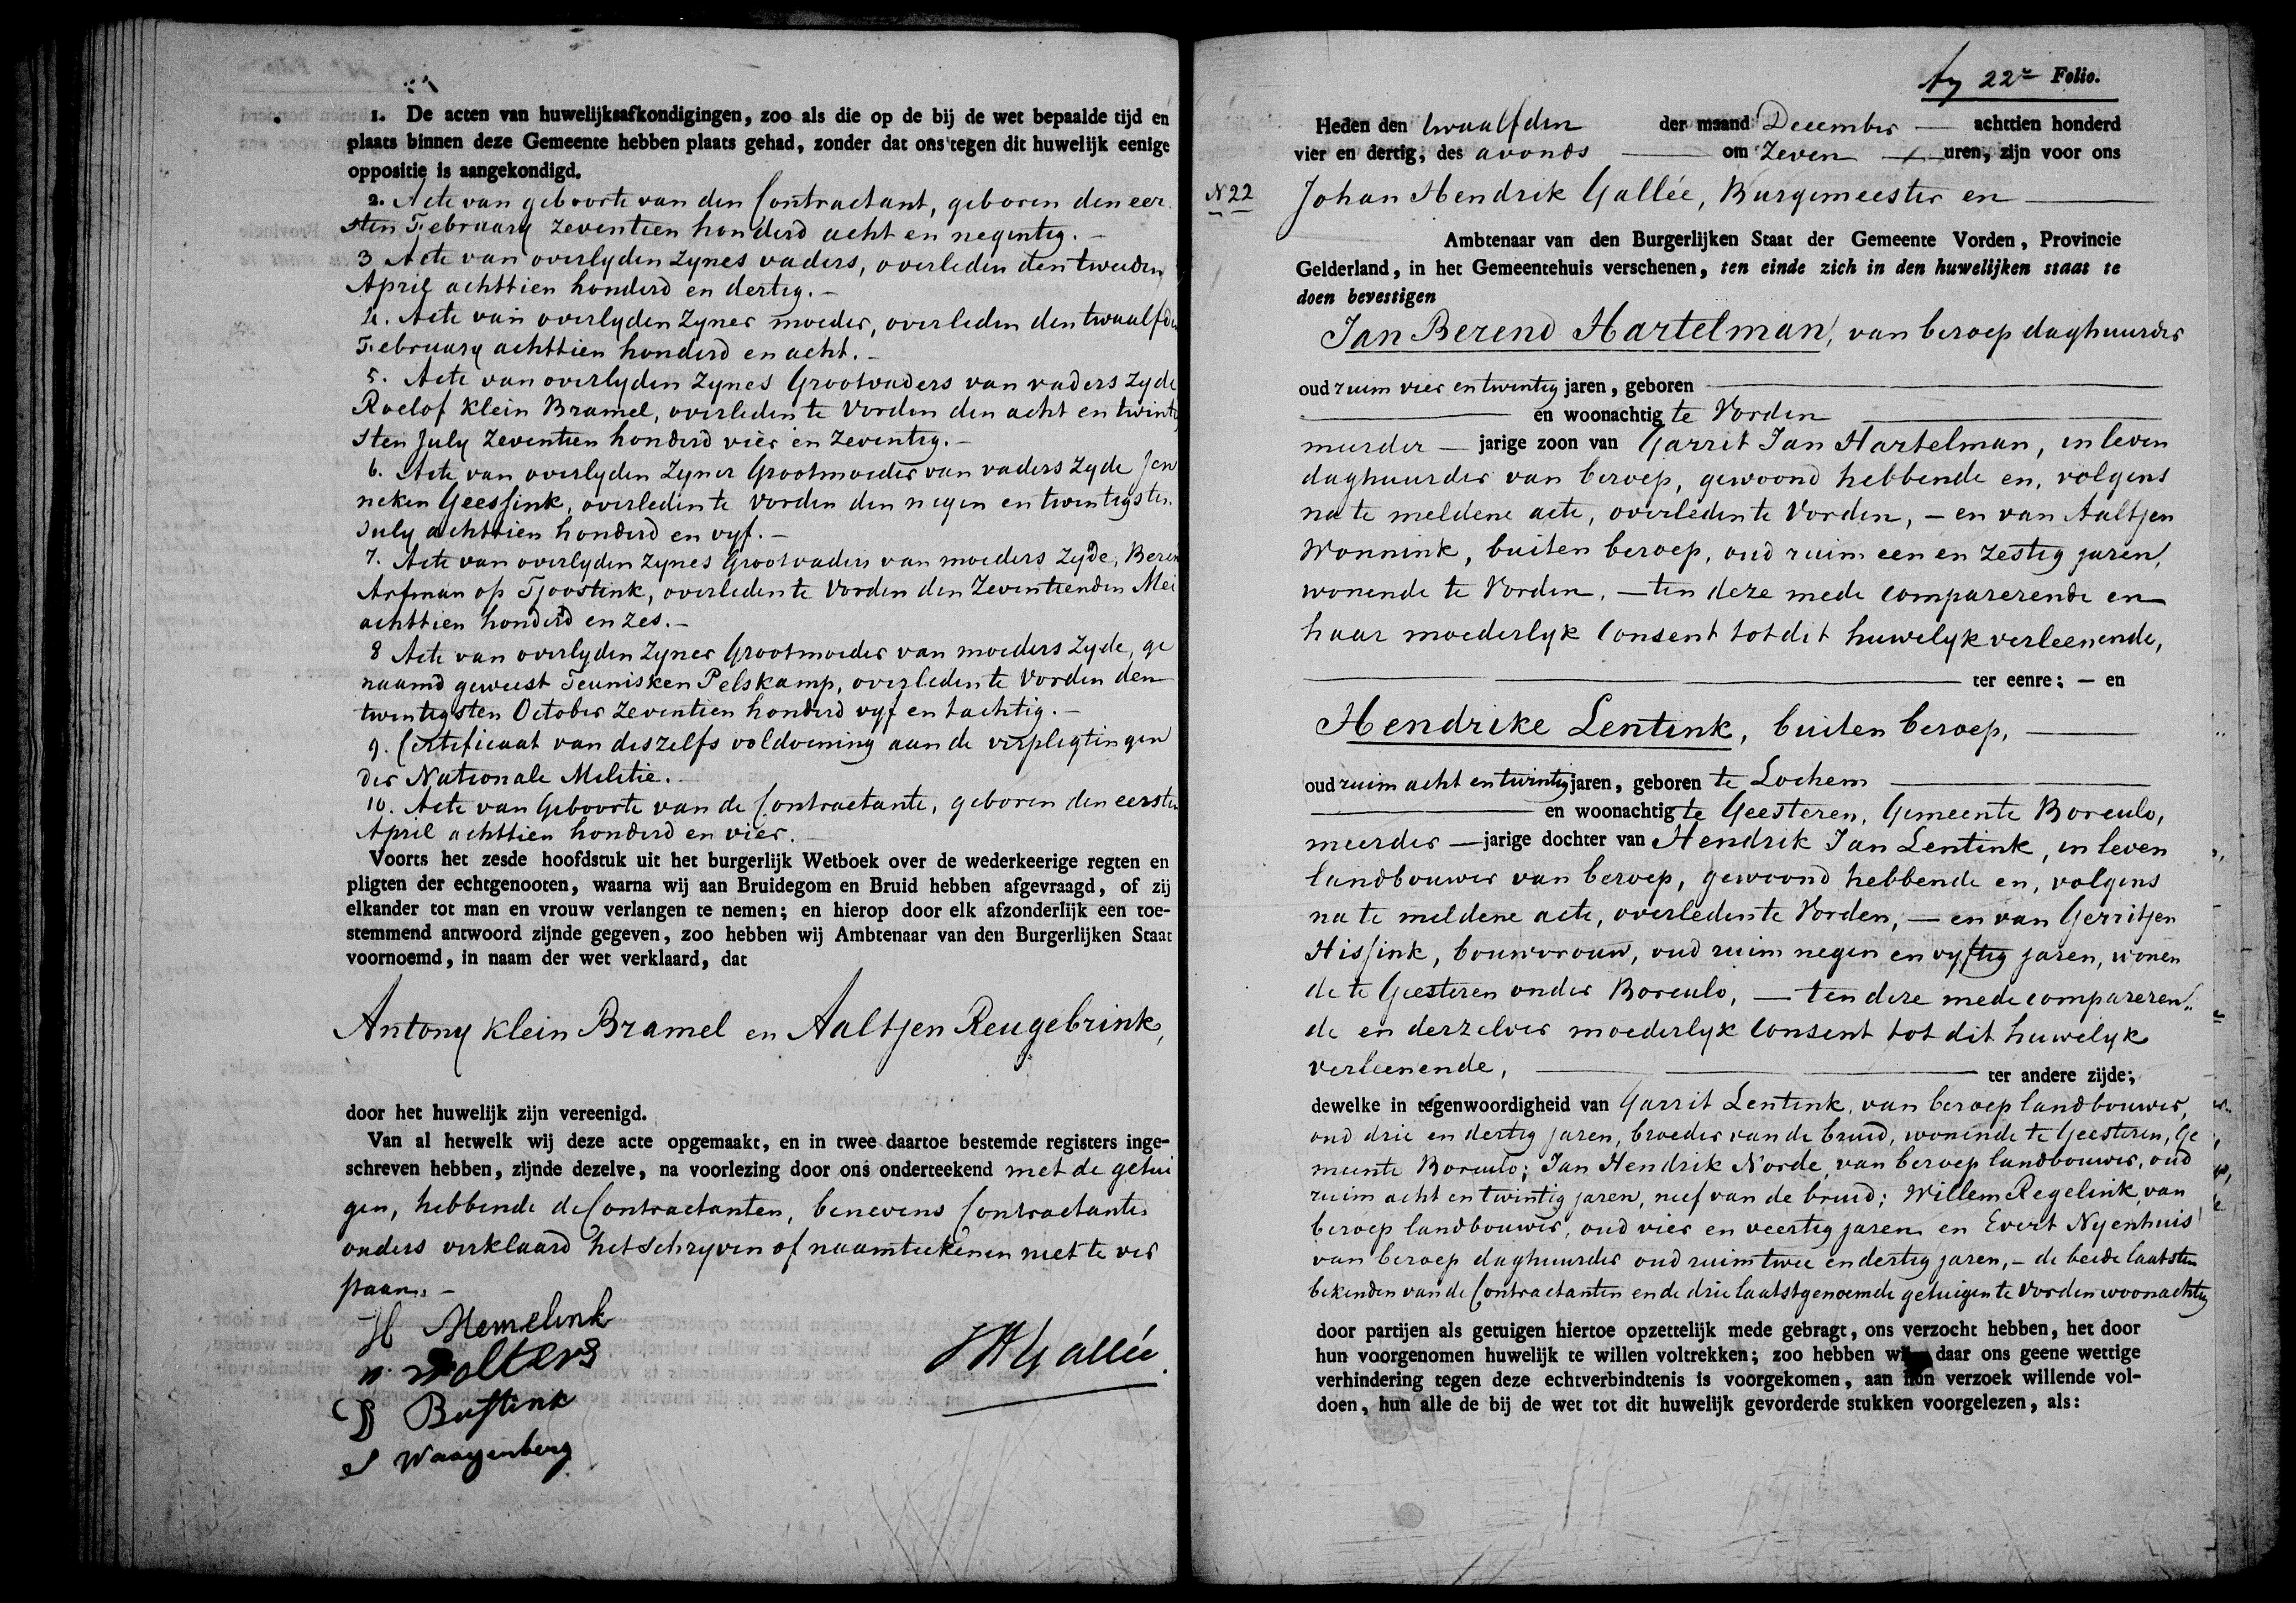 1. De acten van huwelijksafkondigingen, zoo als die op de bij de wet bepaalde tijd en
plaats binnen deze Gemeente hebben plaats gehad, zonder dat ons tegen dit huwelijk eenige
oppositie is aangekondigd.
2. Acte van geboorte van den Contractant, geboren den eer
sten February zeventien honderd acht en negentig. –
3 Acte van overlyden zynes vaders, overleden den tweeden
April achttien honderd en dertig. –
4. Acte van overlyden zyner moeder, overleden den twaalfden
February achttien honderd en acht. –
5. Acte van overlyden zynes Grootvaders van vaders zyde
Roelof Klein Bramel, overleden te Vorden den acht en twintig
sten July zeventien honderd vier en zeventig. –
6. Acte van overlyden zyner Grootmoeder van vaders zyde Jen
neken Geessink, overleden te Vorden den negen en twintigsten
July achttien honderd en vyf. –
7. Acte van overlyden zynes Grootvaders van moeders zyde, Beren
Arfman op Tjoostink, overleden te Vorden den Zeventienden Mei
achttien honderd en zes. –
8 Acte van overlyden zyner Grootmoeder van moeders zyde, ge
naamd geweest Teunisken Pelskamp, overleden te Vorden den
twintigsten October zeventien honderd vyf en tachtig. –
9. Certificaat van deszelfs voldoening aan de verpligtingen
der Nationale Militie. –
10. Acte van Geboorte van de Contractante, geboren den eersten
April achttien honderd en vier. –
Voorts het zesde hoofdstuk uit het burgerlijk Wetboek over de wederkeerige regten en
pligten der echtgenooten, waarna wij aan Bruidegom en Bruid hebben afgevraagd, of zij
elkander tot man en vrouw verlangen te nemen; en hierop door elk afzonderlijk een toe-
stemmend antwoord zijnde gegeven, zoo hebben wij Ambtenaar van den Burgerlijken Staat
voornoemd, in naam der wet verklaard, dat
Antony Klein Bramel en Aaltjen Reugebrink,
door het huwelijk zijn vereenigd.
Van al hetwelk wij deze acte opgemaakt, en in twee daartoe bestemde registers inge-
schreven hebben, zijnde dezelve, na voorlezing door ons onderteekend met de getui
gen, hebbende de Contractanten, benevens Contractantes
ouders verklaard het schryven of naamteekenen niet te ver
staan. –
H Memelink
Wolters
B Bustink
J Waagenberg
JHGallée
22e Folio.
Heden den twaalfden der maand December – achttien honderd
vier en dertig, des avonds – om Zeven – uren, zijn voor ons
N 22 Johan Hendrik Gallée, Burgemeester en –
Ambtenaar van den Burgerlijken Staat der Gemeente Vorden, Provincie
Gelderland, in het Gemeentehuis verschenen, ten einde zich in den huwelijken staat te
doen bevestigen
Jan Berend Hartelman, van beroep daghuurder
oud ruim vier en twintig jaren, geboren –
– en woonachtig te Vorden –
meerder – jarige zoon van Garrit Jan Hartelman, in leven
daghuurder van beroep, gewoond hebbende en, volgens
na te meldene acte, overleden te Vorden, – en van Aaltjen
Wonnink, buiten beroep, oud ruim een en zestig jaren,
wonende te Vorden, – ten deze mede comparerende en
haar moederlyk Consent tot dit huwelyk verleenende,
– ter eenre; – en
Hendrike Lentink, buiten beroep, –
oud ruim acht en twintig jaren, geboren te Lochem –
– en woonachtig te Geesteren, Gemeente Borculo,
meerder – jarige dochter van Hendrik Jan Lentink, in leven
landbouwer van beroep, gewoond hebbende en, volgens
na te meldene acte, overleden te Vorden, – en van Gerritjen
Hissink, bouwvrouw, oud ruim negen en vyftig jaren, wonen
de te Geesteren onder Borculo, – ten deze mede compareren
de en derzelver moederlyk Consent tot dit huwelyk
verleenende, – ter andere zijde;
dewelke in tegenwoordigheid van Garrit Lentink, van beroep landbouwer,
oud drie en dertig jaren, broeder van de bruid, wonende te Geesteren, Ge
meente Borculo; Jan Hendrik Norde, van beroep landbouwer, oud
ruim acht en twintig jaren, neef van de bruid; Willem Regelink, van
beroep landbouwer, oud vier en veertig jaren en Evert Nyenhuis
van beroep daghuurder oud ruim twee en dertig jaren, – de beide laatsten
bekenden van de Contractanten en de drie laatstgenoemde getuigen te Vorden woonachtig
door partijen als getuigen hiertoe opzettelijk mede gebragt, ons verzocht hebben, het door
hun voorgenomen huwelijk te willen voltrekken; zoo hebben wij daar ons geene wettige
verhindering tegen deze echtverbindtenis is voorgekomen, aan hun verzoek willende vol-
doen, hun alle de bij de wet tot dit huwelijk gevorderde stukken voorgelezen, als: